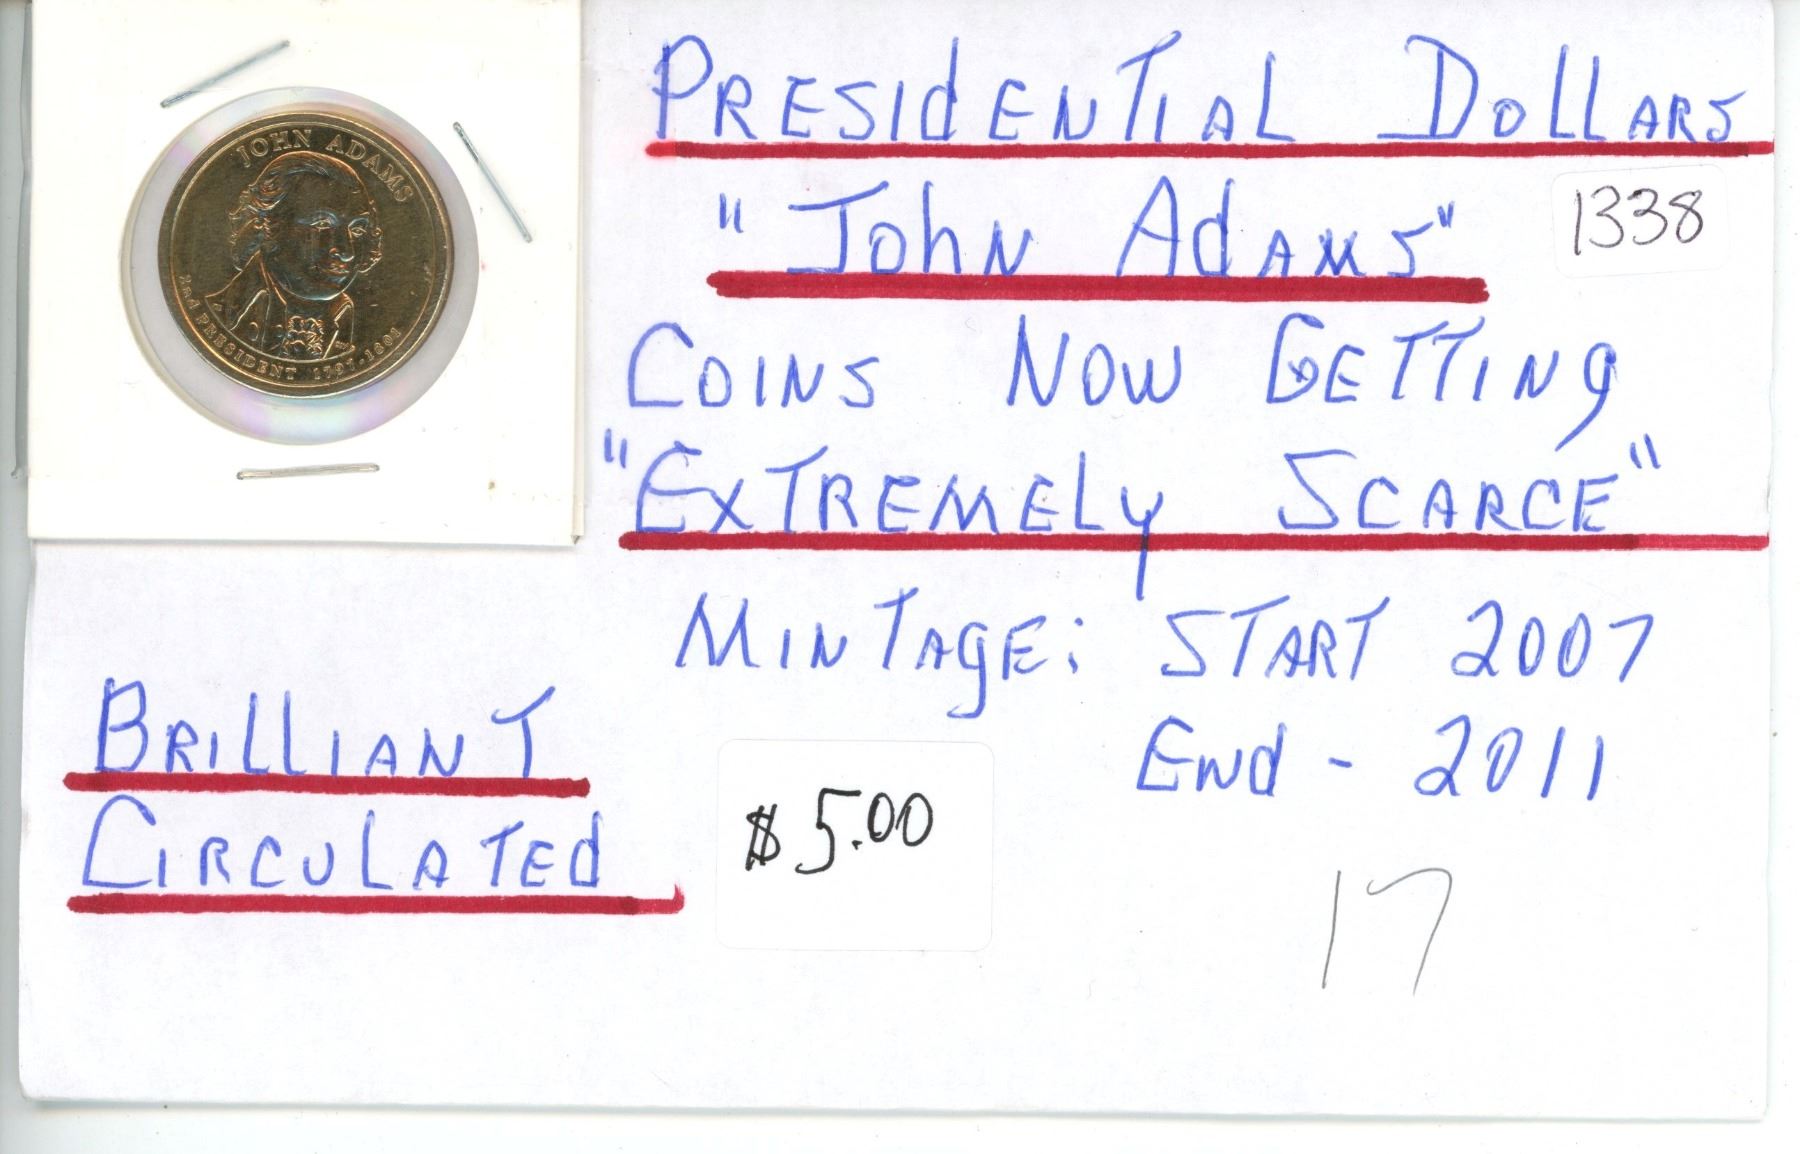 JOHN ADAMS
2nd PRESIDENT 1797-1801
PRESIdENTIAL DOLLARS
"JOhN AdAMS"
1338
COINS NOW GETTINg
"EXTREMELy SCARCE"
MINTAgE: START 2007
ENd - 2011
BRILLIANT
CIRCULATEd
$5.00
17